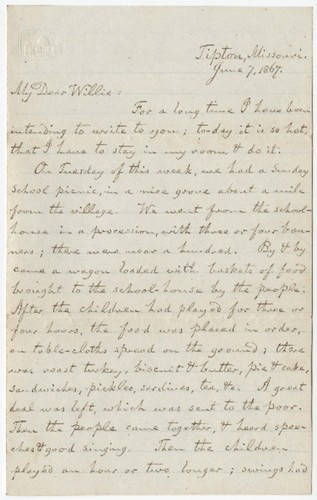 Tipton, Missouri.
June 7, 1867.
My Dear Willie:
For a long time I have been
intending to write to you; to-day it is so hot,
that I have to stay in my room & do it.
On Tuesday of this week, we had a Sunday
School picnic, in a nice grove about a mile
from the village. We went from the school-
house in a procession, with three or four ban-
ners; there were near a hundred. By & by
came a wagon loaded with baskets of food
brought to the school-house by the people.
After the children had played for three or
four hours, the food was placed in order,
on table-cloths spread on the ground; there
was roast turkey, biscuit & butter, pie & cake,
sandwiches, pickles, sardines, tea, &c. A great
deal was left, which was sent to the poor.
Then the people came together, & heard spee-
ches & good singing. Then the children
played an hour or two longer; swings had